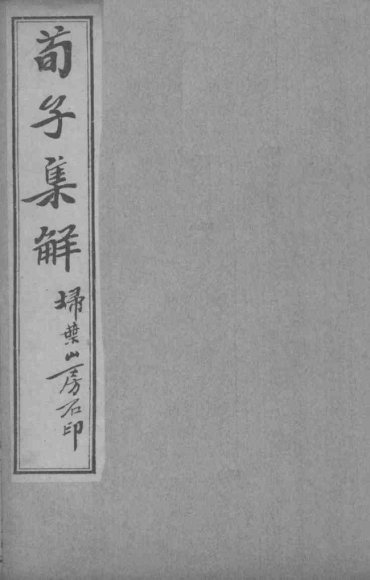 荀子集解
埽葉山房石印